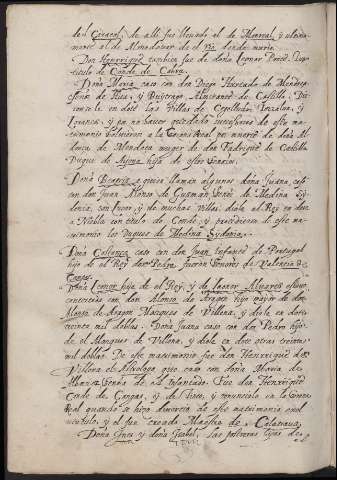 de allí fue llevado el de Monreal, y
mente al de Almodovar de el Río donde murio.
Don Henrrique tambien fue de doña Leonor Ponce, tuvo
titulo de Conde de Cabra.
Doña Maria caso con don Diego Hurtado de Mendoça
señor de Hita, y Buytrago Almirante de Castilla. Dio
en dote las Villas de Cogolludo, Loranca, y
y por no haver quedado sucesores de este ma
trimonio bolvieron a la Corona Real por muerte de doña Al
donça de Mendoça muger de don Fadrique de Castilla
Duque de Arjona, hija de este señor.
Doña Beatriz a quien llaman algunos doña Juana, caso
con don Juan Alonso de Guzman Conde de Medina Sy
donia, con Juro, y de muchas Villas, diole el Rey en dote
a Niebla con titulo de Conde, y procedieron de este ma
trimonio los Duques de Medina Sydonia.
Doña Costança caso con don Juan Infante de Portugal
hijo de el Rey don Pedro, fueron señores de Valencia de
Campos.
Doña Leonor hija de el Rey, y de Leonor Alvarez estuvo
concertada con don Alonso de Aragon hijo mayor de don
Alonso de Aragon Marques de Villena, y diole en dote
treinta mil doblas. Doña Juana caso con don Pedro hijo
de el Marques de Villena, y diole en dote otras treinta
mil doblas. De este matrimonio fue don Henrrique de
Villena el Astrologo que caso con doña Maria de
Albornoz señora de el Infantado. Fue don Henrrique
Conde de Cangas, y de Tineo, y renunciolo en la Corona
Real quando se hizo divorcio de este matrimonio
y el fue creado Maestre de Calatrava.
Doña Ines y doña Isabel, las postreras hijas de